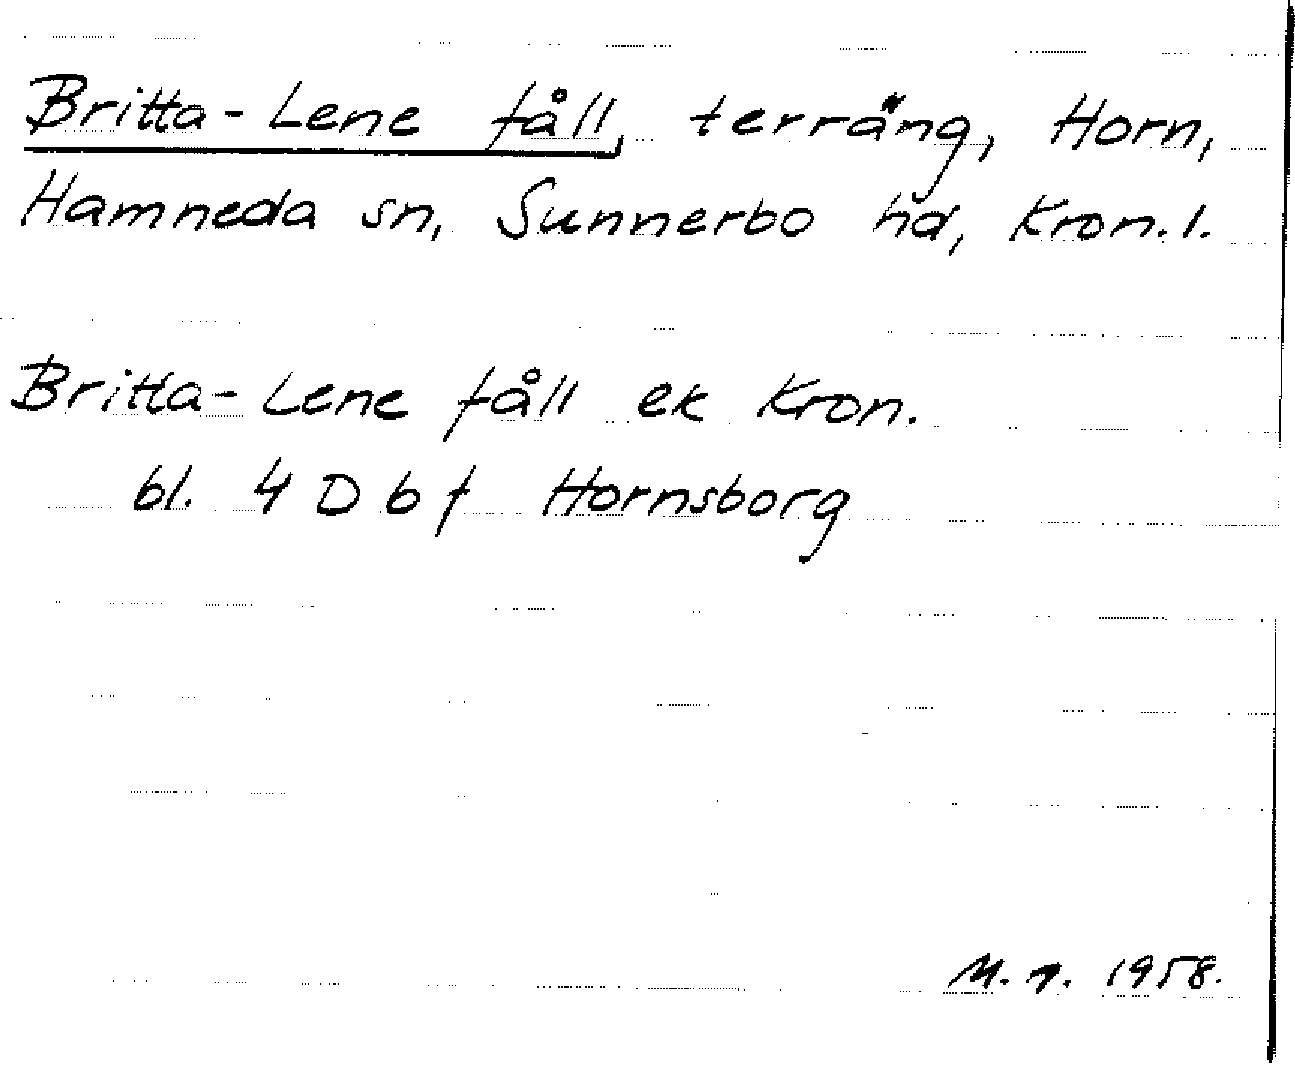 Britta-Lene fåll, terräng, Horn,
Hamneda sn, Sunnerbo hd, Kron.l.
Britta-Lene fåll ek Kron.
bl. 4 D b f Hornsborg
1958.